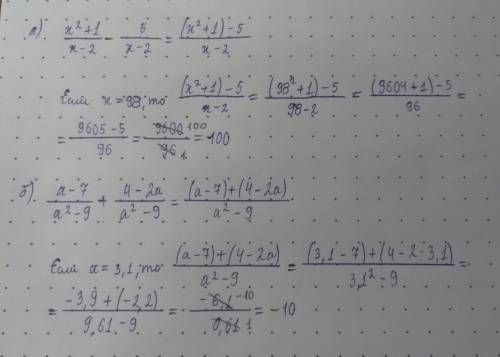 а). (x²+1)/(x-2) - 5/(x-2) = ((x²+1)-5)/(x-2)
Если x=98, то ((x²+1)-5)/(x-2) = ((98²+1)-5)/(98-2) = ((9604+1)-5)/96 =
= (9605-5)/96 = 9600 100/96 1 = 100
б). (a-7)/(a²-9) + (4-2a)/(a²-9) = ((a-7)+(4-2a))/(a²-9)
Если a=3,1, то ((a-7)+(4-2a))/(a²-9) = ((3,1-7)+(4-2·3,1))/(3,1²-9) =
= (-3,9+(-2,2))/(9,61-9) = -6,1 -10/0,61 1 = -10